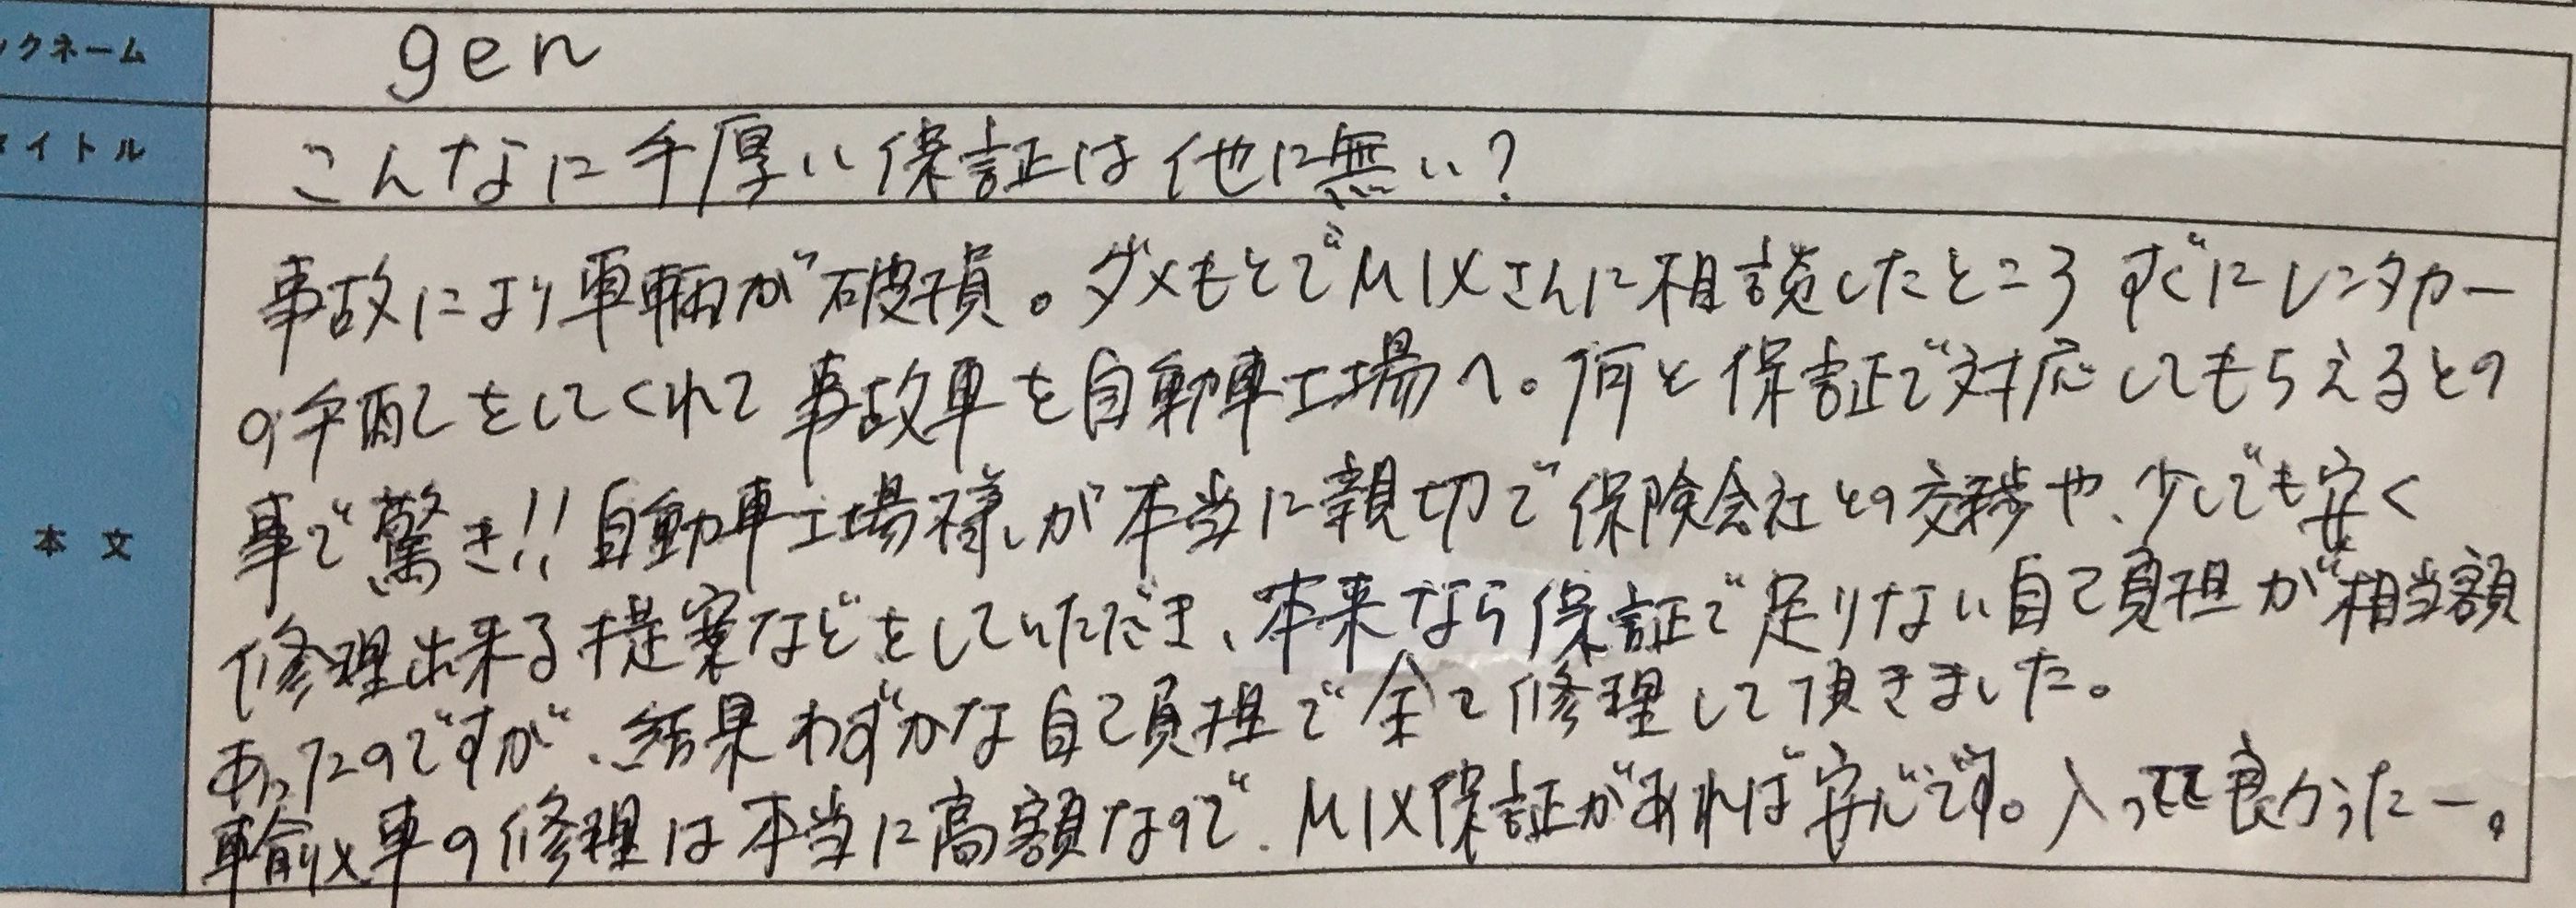 ックネーム gen
タイトル こんなに手厚い保証は他に無い?
本文
事故により車輌が破損。ダメもとでMIXさんに相談したところすぐにレンタカー
の手配をしてくれて事故車を自動車工場へ。何と保証で対応してもらえるとの
事で驚き!!自動車工場様が本当に親切で保険会社との交渉や、少しでも安く
修理出来る提案などをしていただき、本来なら保証で足りない自己負担が相当額
あったのですが、結果わずかな自己負担で全て修理して頂きました。
輸入車の修理は本当に高額なので、MIX保証があれば安心です。入って良かったー。